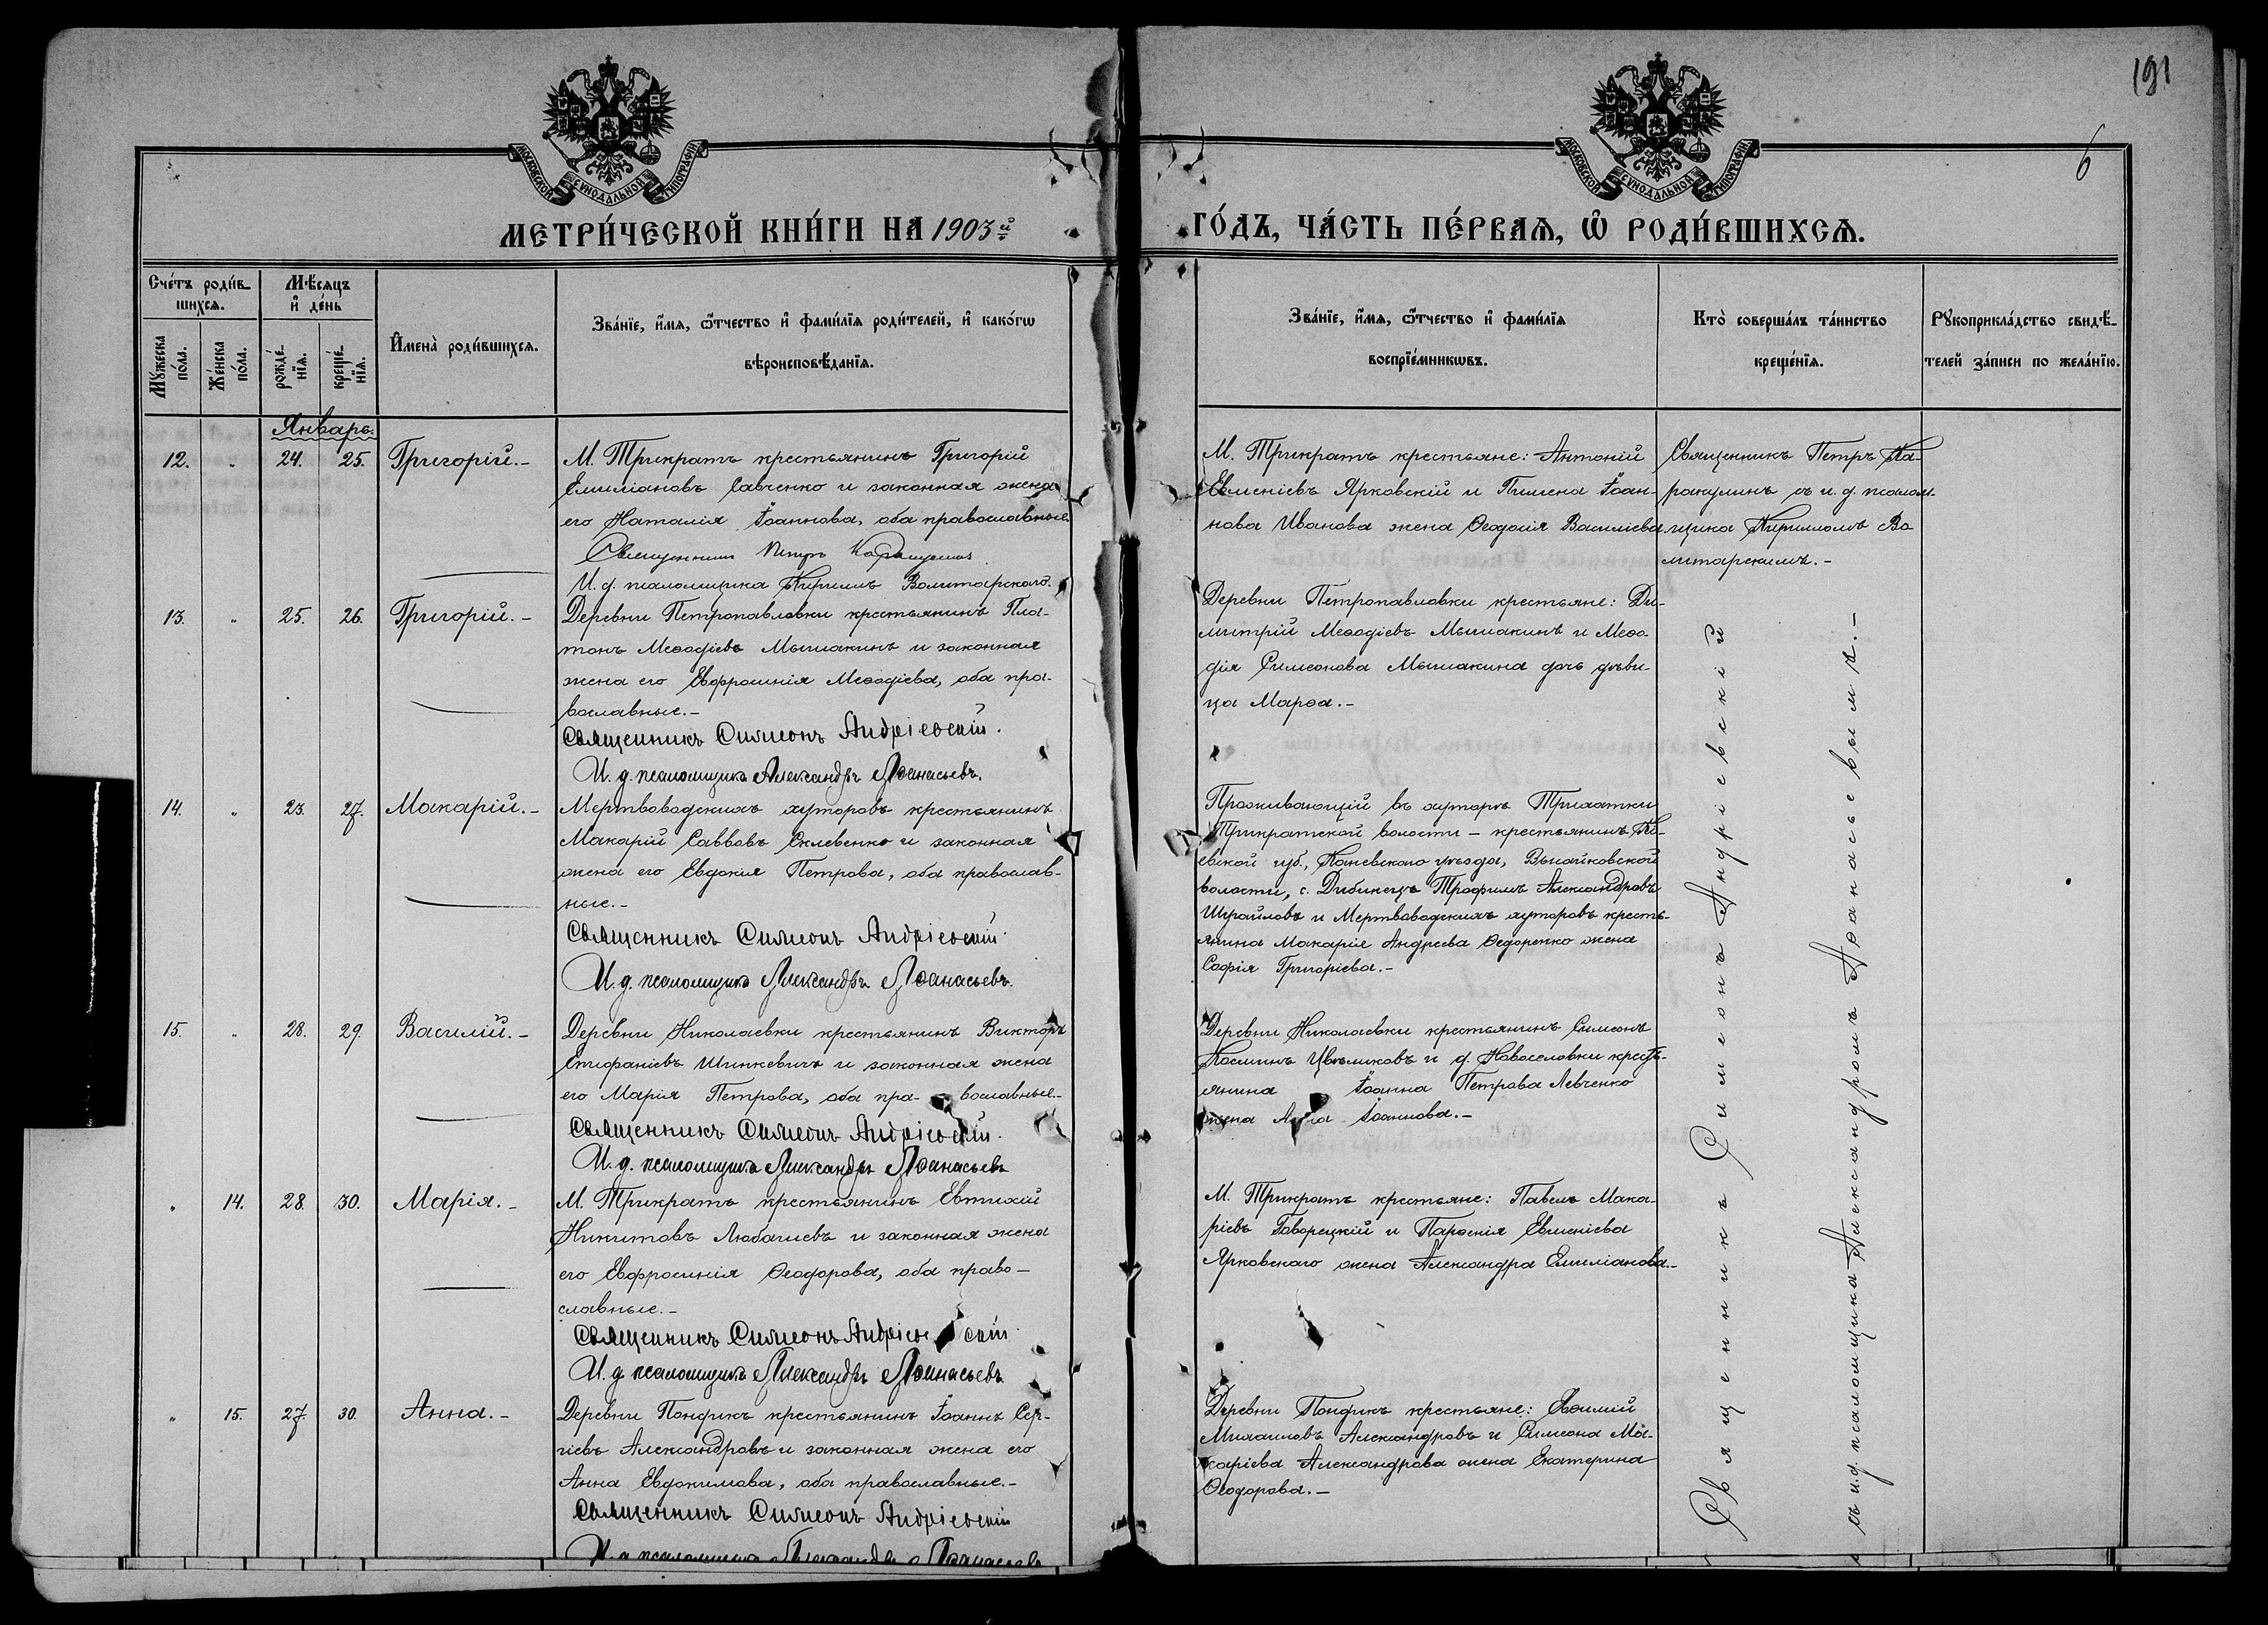 191
6
МОСКОВСКОЙ СУНОДАЛЬНОЙ ТИПОГРАФІИ
МОСКОВСКОЙ СУНОДАЛЬНОЙ ТИПОГРАФІИ
МЕТРИ́ЧЕСКОЙ КНИ́ГИ НА 1903й
ГО́ДЪ, ЧА́СТЬ ПЕ́РВАѦ, Ѡ҆ РОДИ́ВШИХСѦ.
Сче́тъ роди́в-
шихсѧ.
Мꙋ́жеска
по́ла.
Же́нска
по́ла.
Мѣ́сѧцъ
и҆ де́нь
рожде́-
нїѧ.
креще́-
нїѧ.
И҆мена̀ роди́вшихсѧ.
Зва́нїе, и҆́мѧ, ѻ҆́тчество и҆ фами́лїѧ роди́телей, и҆ како́гѡ
вѣроисповѣ́данїѧ.
Зва́нїе, и҆́мѧ, ѻ҆́тчество и҆ фами́лїѧ
воспрїе́мникѡвъ.
Кто̀ соверша́лъ та́инство
креще́нїѧ.
Рꙋкоприкла́дство свидѣ́-
телей за́писи по жела́нїю.
Январь.
12. " 24. 25. Григорій.-
М. Трикратъ крестьянинъ Григорій
Емиліановъ Савченко и законная жена
его Наталія Іоаннова, оба православные.
Священникъ Петръ
И. д. псаломщика Кириллъ
М. Трикратъ крестьяне: Антоній
Евменіевъ Ярковскій и Пимена Іоан-
нова Иванова жена Ѳеодосія Василіева
Священникъ Петръ Ка-
ракулинъ съ и. д. псалом-
щика Кирилломъ Во
литарскимъ.-
13. " 25. 26. Григорій.-
Деревни Петропавловки крестьянинъ Пла-
тонъ Меѳодіевъ Мышакинъ и законная
жена его Евфросинія Меѳодіева, оба пра-
вославные.-
Священникъ Симеонъ Андріевскій.
И. д. псаломщика Александръ Аѳанасьевъ.
Деревни Петропавловки крестьяне: Ди-
митрій Меѳодіевъ Мышакинъ и Меѳо-
дія Симеонова Мышакина дочь дѣви-
ца Марѳа.-
14. " 23. 27. Макарій.-
Мертвоводскихъ хуторовъ крестьянинъ
Макарій Саввовъ Склевенко и законная
жена его Евдокія Петрова, оба православ-
ные.-
Священникъ Симеонъ Андріевскій.
И. д. псаломщика Александръ Аѳанасьевъ.
Проживающій въ хуторѣ Трихатки
Трикратской волости - крестьянинъ Кі-
евской губ., Каневскаго уѣзда,
волости, с. Дибинецъ Трофимъ Александровъ
и Мертвоводскихъ хуторовъ кресть-
янина Макарія Андреева Ѳедоренко жена
Софія Григоріева.-
15. " 28. 29. Василій.-
Деревни Николаевки крестьянинъ Викторъ
Епифаніевъ Шинкевичъ и законная жена
его Марія Петрова, оба пра- вославные.-
Священникъ Симеонъ Андріевскій.
И. д. псаломщика Александръ Аѳанасьевъ
Деревни Николаевки крестьянинъ Симеонъ
Косминъ Цвѣликовъ и д. Новоселовки кресть-
янина Іоанна Петрова Левченко
жена Анна Іоаннова.-
" 14. 28. 30. Марія.-
М. Трикратъ крестьянинъ Евтихій
Никитовъ Любашевъ и законная жена
его Евфросинія Ѳеодорова, оба право-
славные.-
Священникъ Симеонъ Андріевскій
И. д. псаломщика Александръ Аѳанасьевъ
М. Трикратъ крестьяне: Павелъ Мака-
ріевъ Говорецкій и Параскія Евменіева
Ярковскаго жена Александра Емиліанова.-
" 15. 27. 30. Анна.-
Деревни Пондикъ крестьянинъ Іоаннъ Сер-
гіевъ Александровъ и законная жена его
Анна Евдокимова, оба православные.-
Священникъ Симеонъ Андріевскій
И. д. псаломщика Александръ Аѳанасьевъ
Деревни Пондикъ крестьяне: Евѳимій
Михаиловъ Александровъ и Симеона Ма-
каріева Александрова жена Екатерина
Ѳеодорова.-
Священникъ Симеонъ Андріевскій
съ и. д. псаломщика Александромъ Аѳанасьевымъ.-